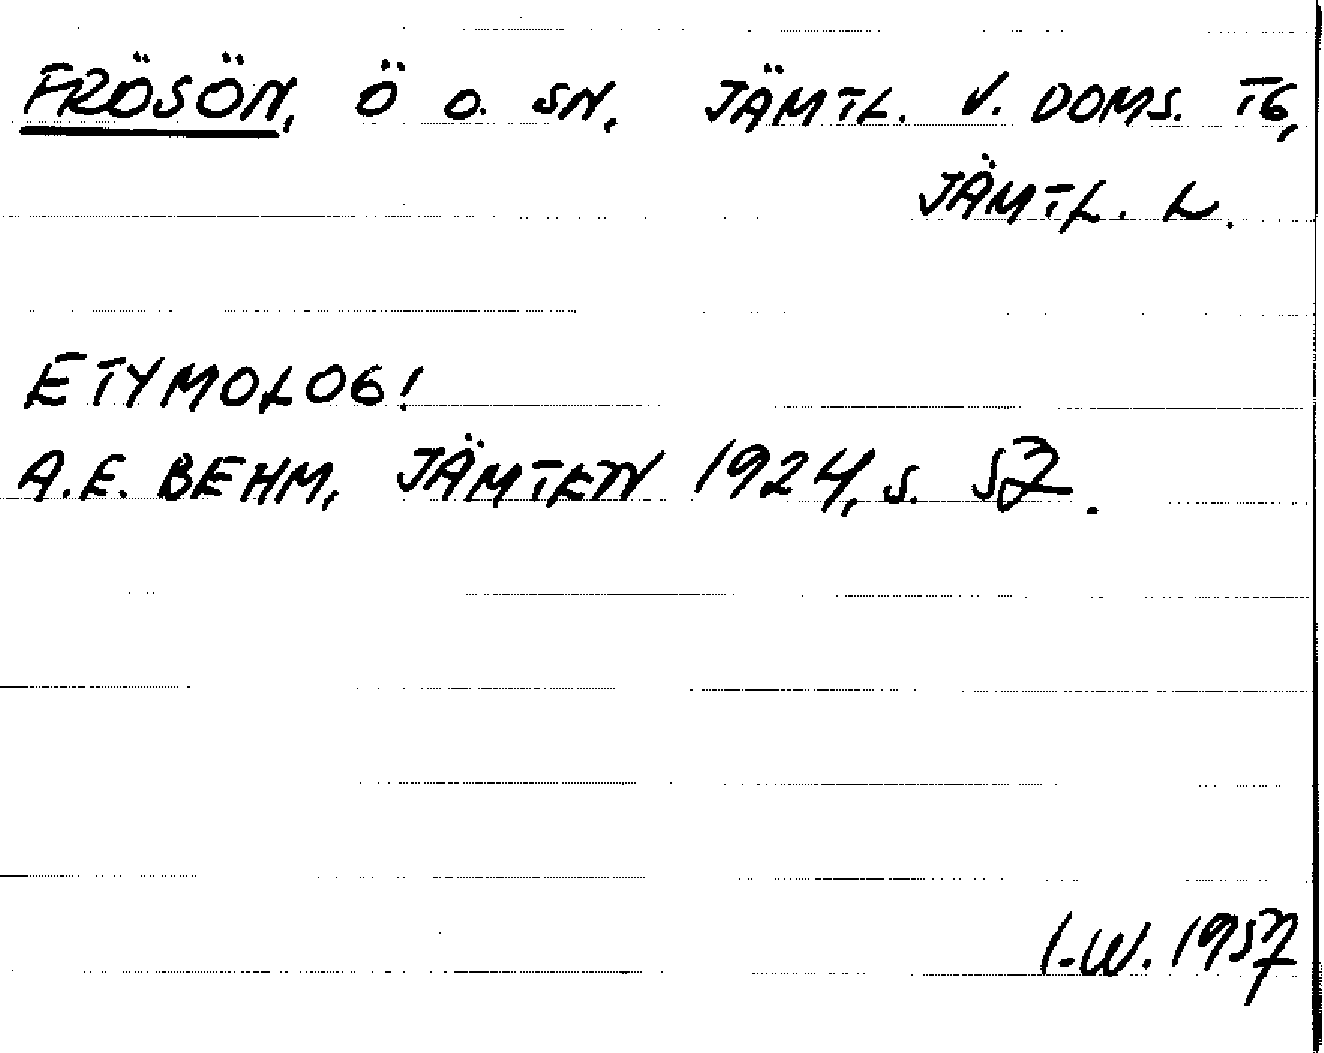 FRÖSÖN, Ö O. SN, JÄMTL. V. DOMS. TG,
JÄMTL. L.
ETYMOLOGI
A.E. BEHM, JÄMTEN 1924, S. 52.
I.W. 1957